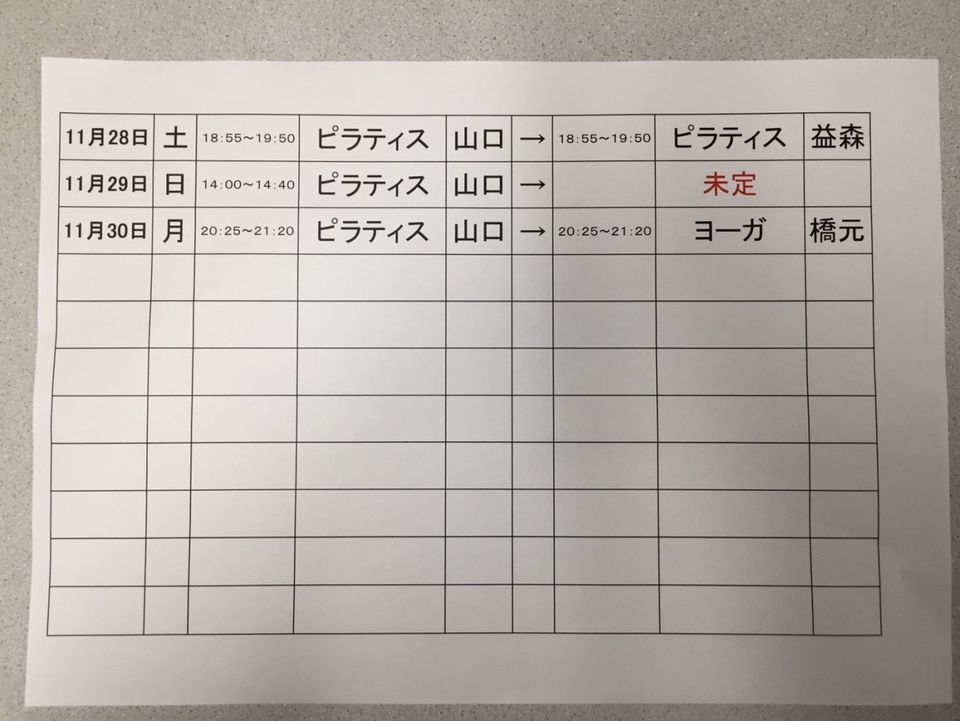 11月28日 土 18:55～19:50 ピラティス 山口 → 18:55～19:50 ピラティス 益森
11月29日 日 14:00～14:40 ピラティス 山口 → 未定
11月30日 月 20:25～21:20 ピラティス 山口 → 20:25～21:20 ヨーガ 橋元